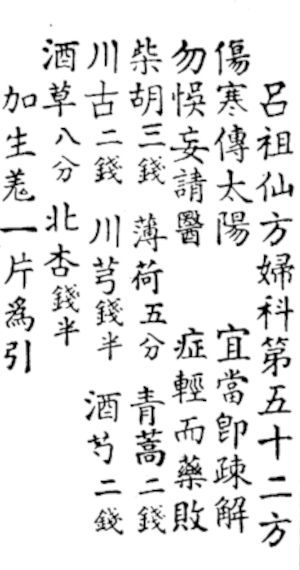 呂祖仙方婦科第五十二方
傷寒傳太陽 宜當即疎解
勿悞妄請醫 症輕而藥敗
柴胡三錢 薄荷五分 青蒿二錢
川古二錢 川芎錢半 酒芍二錢
酒草八分 北杏錢半
加生羗一片爲引